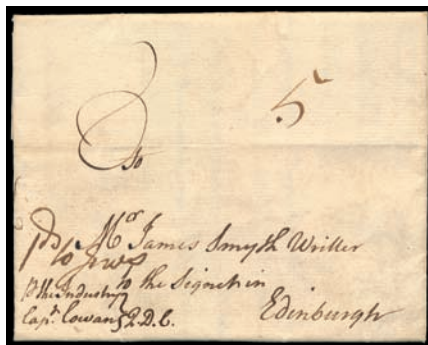 5
To
Mr James Smyth Writter
to the Signet in
Edinburgh
p the Industry
Capt Cowan Q.D.C.